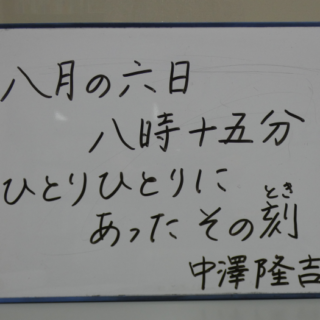 八月の六日
八時十五分
ひとりひとりに
あった その刻
とき
中澤隆吉